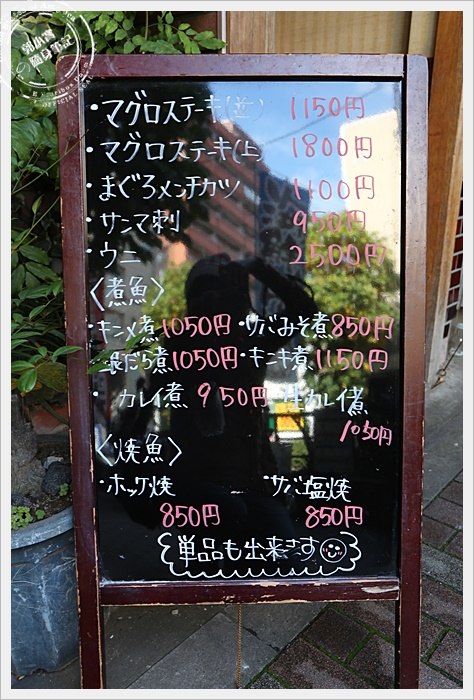 ・マグロステーキ(並) 1150円
・マグロステーキ(上) 1800円
・まぐろメンチカツ 1100円
・サンマ刺 950円
・ウニ 2500円
〈煮魚〉
・キンメ煮 1050円 ・サバみそ煮 850円
・銀だら煮 1050円 ・キンキ煮 1150円
・カレイ煮 950円 ・生カレイ煮
1050円
〈焼魚〉
・ホッケ焼 ・サバ塩焼
850円 850円
単品も出来ます